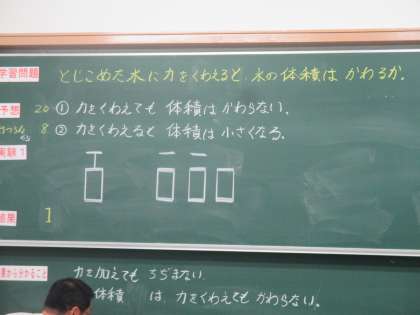 学習問題 とじこめた水に力をくわえると、水の体積は かわるか。
予想 20 ① 力をくわえても 体積は かわらない。
8 ② 力をくわえると 体積は 小さくなる。
実験1
結果 1
から分かること 力を加えても ちぢまない
体積 は 力をくわえても かわらない。